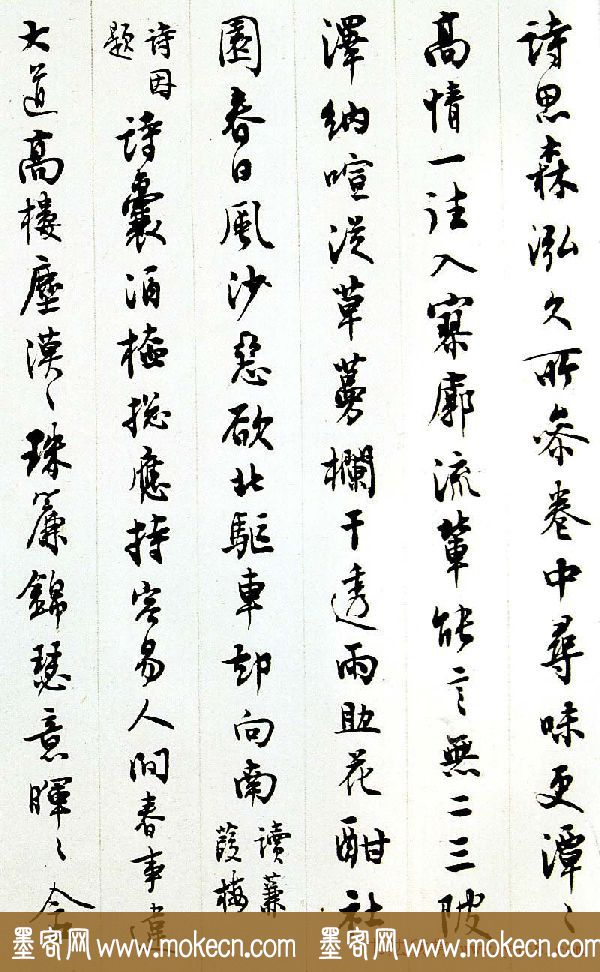 詩思森泓久所參卷中尋味更潭〻
高情一注入寥廓流輩能言無二三陂
澤納喧從草蔓欄干透雨助花酣社
園春日風沙惡欲北驅車却向南讀蒹葭樓
詩因題詩囊酒榼總應持容易人間春事違
大道高樓塵漠〻珠簾錦瑟意暉〻
墨客网 www.mokecn.com 墨客网 www.mokecn.com